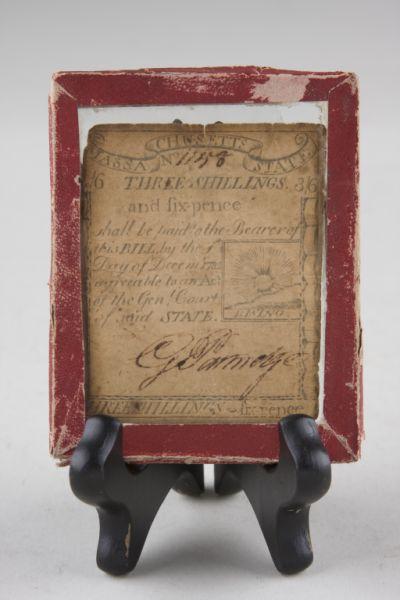 CHUSETTS
MASSA STATE
N 1158
3/6 THREE SHILLINGS. 3/6
and six-pence
shall be paid to the Bearer of
this BILL, by the 1
Day of Decem 178
agreeable to an Act
of the Genl. Court
of said STATE.
RISING
THREE SHILLINGS six-pence